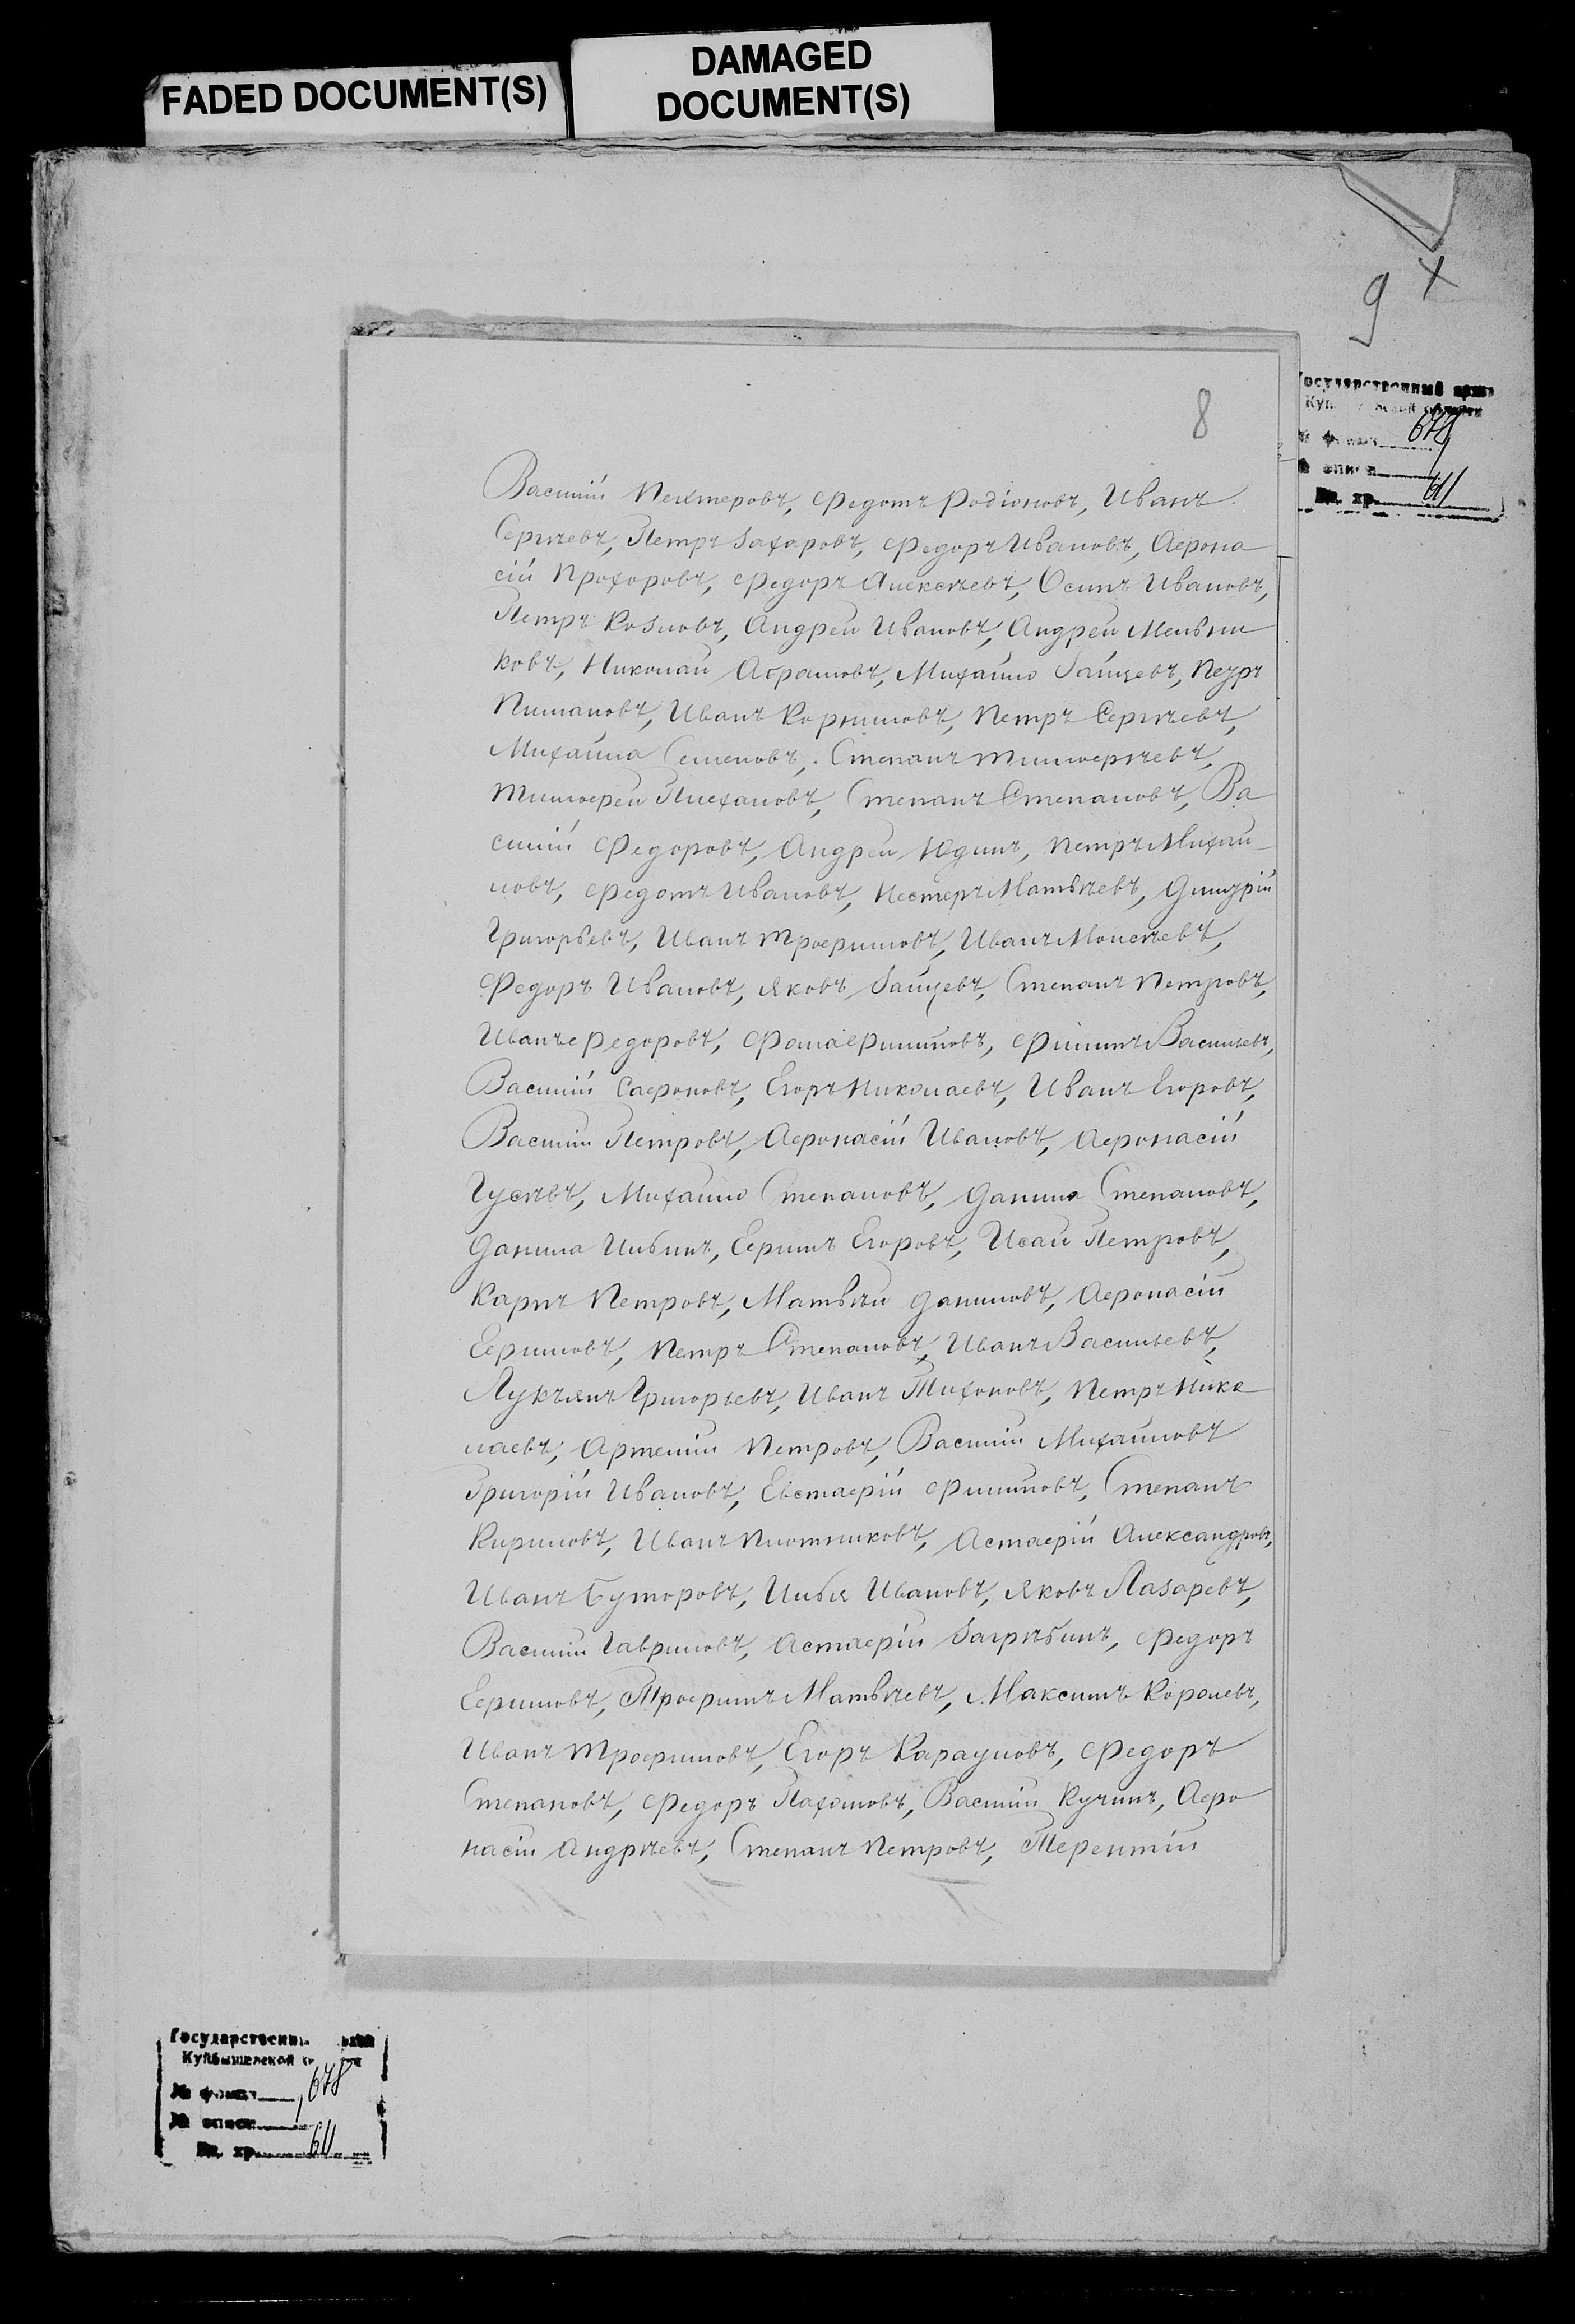 FADED DOCUMENT(S)
DAMAGED
DOCUMENT(S)
9 X
8
Государственный архив
678
61
Василій Пехтеровъ, Федотъ Родіоновъ, Иванъ
Сергѣевъ, Петръ Захаровъ, Федоръ Ивановъ, Афона
сій Прохоровъ, Федоръ Алексѣевъ, Осипъ Ивановъ,
Петръ Козловъ, Андрей Ивановъ, Андрей Мельни
ковъ, Николай Абрамовъ, Михайло Зайцевъ, Петръ
Пимановъ, Иванъ Корниловъ, Петръ Сергѣевъ,
Михайла Семеновъ, Степанъ Тимофѣевъ,
Тимофей Плехановъ, Степанъ Степановъ, Ва
силій Федоровъ, Андрей Юдинъ, Петръ Михай
ловъ, Федотъ Ивановъ, Нестеръ Матвѣевъ, Дмитрій
Григорьевъ, Иванъ Трофимовъ, Иванъ Моисѣевъ,
Федоръ Ивановъ, Яковъ Зайцевъ, Степанъ Петровъ,
Иванъ Федоровъ, Фома Филиповъ, Филипъ Васильевъ,
Василій Сафоновъ, Егоръ Николаевъ, Иванъ Егоровъ,
Василій Петровъ, Афонасій Ивановъ, Афонасій
Гусѣвъ, Михайло Степановъ, Данила Степановъ,
Данила Ильинъ, Ефимъ Егоровъ, Исай Петровъ,
Карпъ Петровъ, Матвѣй Даниловъ, Афонасій
Ефимовъ, Петръ Степановъ, Иванъ Васильевъ,
Лукъянъ Григорьевъ, Иванъ Тихоновъ, Петръ Нико
лаевъ, Артемій Петровъ, Василій Михайловъ
Григорій Ивановъ, Евстафій Филиповъ, Степанъ
Кириловъ, Иванъ Плотниковъ, Астафій Александровъ,
Иванъ Буторовъ, Илья Ивановъ, Яковъ Лазаревъ,
Василій Гавриловъ, Астафій Загрѣбинъ, Федоръ
Ефимовъ, Трофимъ Матвѣевъ, Максимъ Королевъ,
Иванъ Трофимовъ, Егоръ Карауловъ, Федоръ
Степановъ, Федоръ Пахомовъ, Василій Кучинъ, Афо
насій Андрѣевъ, Степанъ Петровъ, Терентій
Государственный
Куйбышевской
№ фонда 678
№ описи 1
Ед. хр. 61